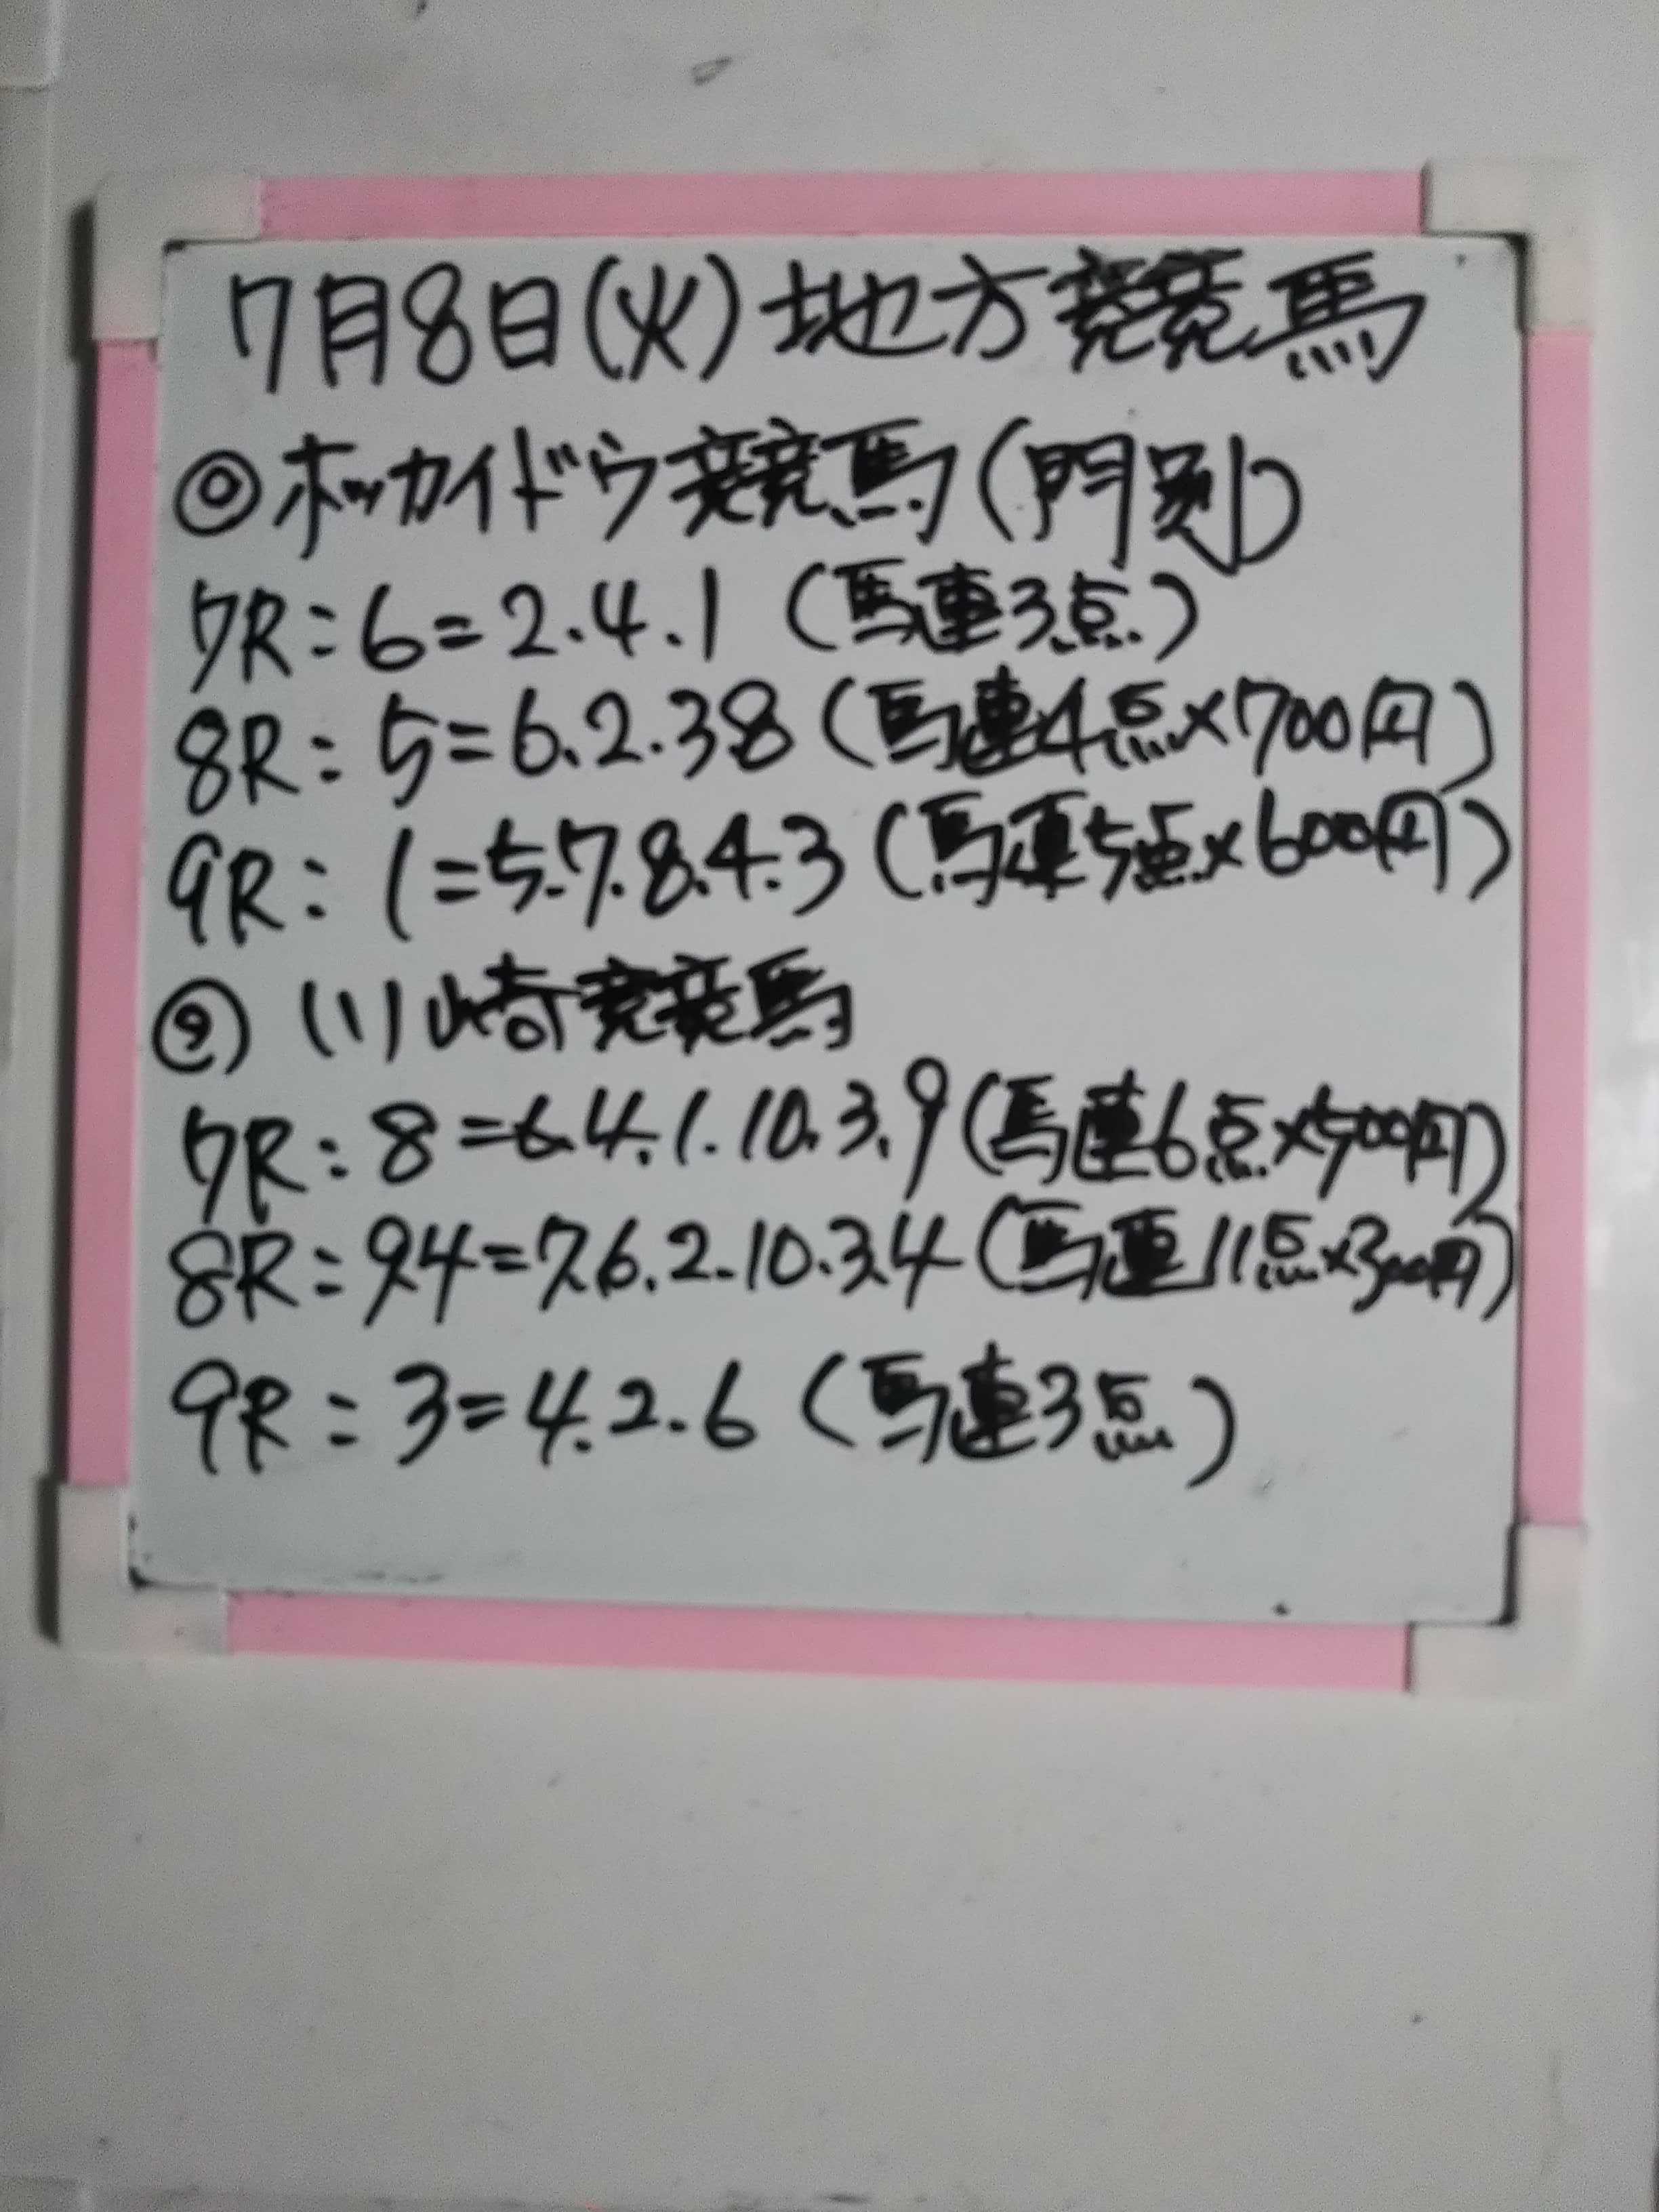 7月8日(火)地方競馬
◎ホッカイドウ競馬(門別)
7R:6=2.4.1(馬連3点)
8R:5=6.2.3.8(馬連4点×700円)
9R:1=5.7.8.4.3(馬連5点×600円)
◎川崎競馬
7R:8=6.4.1.10.3.9(馬連6点×500円)
8R:9.4=7.6.2.10.3.4(馬連11点×300円)
9R:3=4.2.6(馬連3点)